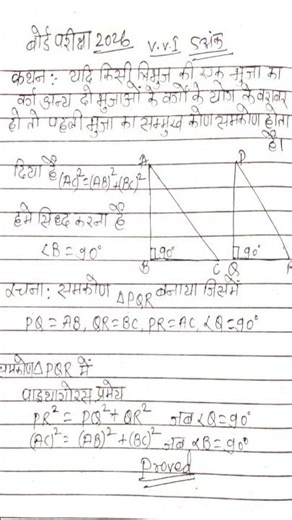 बोर्ड परीक्षा 2026 V.V.I 5 अंक
कथन:- यदि किसी त्रिभुज की एक भुजा का
वर्ग अन्य दो भुजाओं के वर्गों के योग के बराबर
हो तो पहली भुजा का सम्मुख कोण समकोण होता
है।
दिया है (AC)²=(AB)²+(BC)²
हमे सिध्द करना है
∠B = 90°
A
B
C
90°
P
Q
R
90°
रचना: समकोण △PQR बनाया जिसमें
PQ = AB, QR = BC, PR = AC, ∠Q = 90°
समकोण △PQR में
पाइथागोरस प्रमेय
PR² = PQ² + QR² जब ∠Q = 90°
(AC)² = (AB)² + (BC)² जब ∠B = 90°
Proved